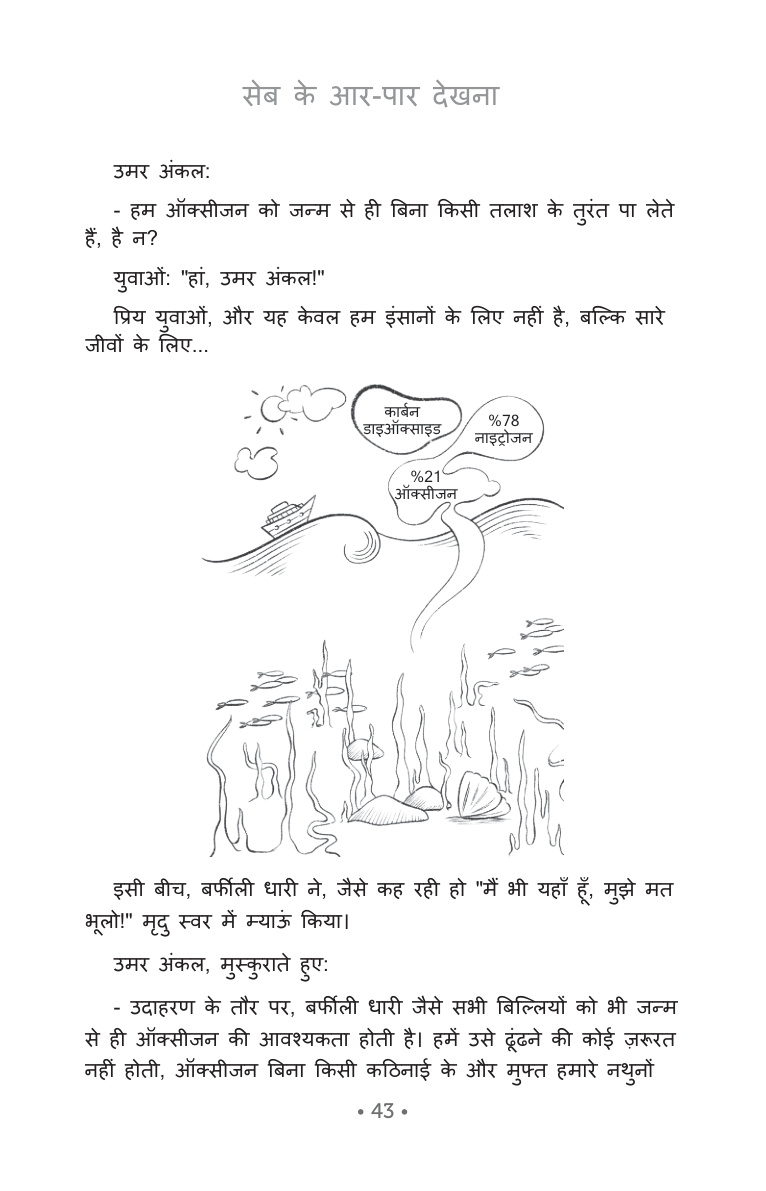 सेब के आर-पार देखना
उमर अंकल:
- हम ऑक्सीजन को जन्म से ही बिना किसी तलाश के तुरंत पा लेते
हैं, है न?
युवाओं: "हां, उमर अंकल!"
प्रिय युवाओं, और यह केवल हम इंसानों के लिए नहीं है, बल्कि सारे
जीवों के लिए...
कार्बन
डाइऑक्साइड
%78
नाइट्रोजन
%21
ऑक्सीजन
इसी बीच, बर्फीली धारी ने, जैसे कह रही हो "मैं भी यहाँ हूँ, मुझे मत
भूलो!" मृदु स्वर में म्याऊं किया।
उमर अंकल, मुस्कुराते हुए:
- उदाहरण के तौर पर, बर्फीली धारी जैसे सभी बिल्लियों को भी जन्म
से ही ऑक्सीजन की आवश्यकता होती है। हमें उसे ढूंढने की कोई ज़रूरत
नहीं होती, ऑक्सीजन बिना किसी कठिनाई के और मुफ्त हमारे नथुनों
• 43 •